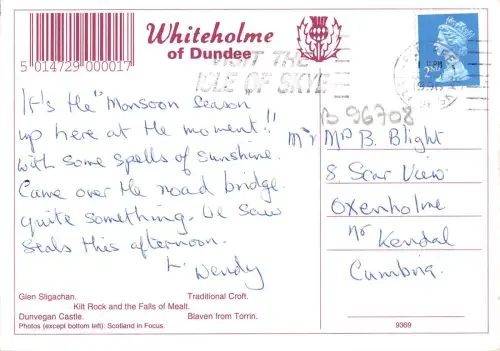 Whiteholme
of Dundee
5 014729 000017
VISIT THE
ISLE OF SKYE
2ND
B 96708
It's the "Monsoon Season
up here at the moment!!
with some spells of sunshine.
Came over the road bridge.
quite something. We saw
Seals this afternoon.
L. Wendy
Mr & Mrs B. Blight
8. Scar View.
Oxenholme
nr Kendal
Cumbria.
Glen Sligachan. Traditional Croft.
Kilt Rock and the Falls of Mealt.
Dunvegan Castle. Blaven from Torrin.
Photos (except bottom left): Scotland in Focus.
9369